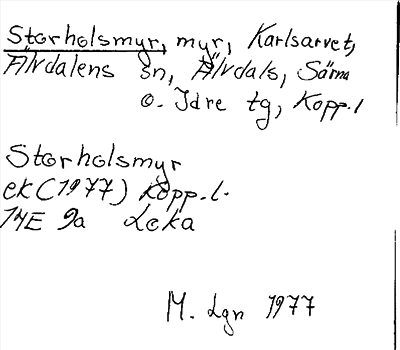 Storholsmyr, myr, Karlsarvet,
Älvdalens sn, Älvdals, Särna
o. Idre tg, Kopp.l
Storholsmyr
ek (1977) Kopp.l.
14E 9a Loka
M. Lgn 1977